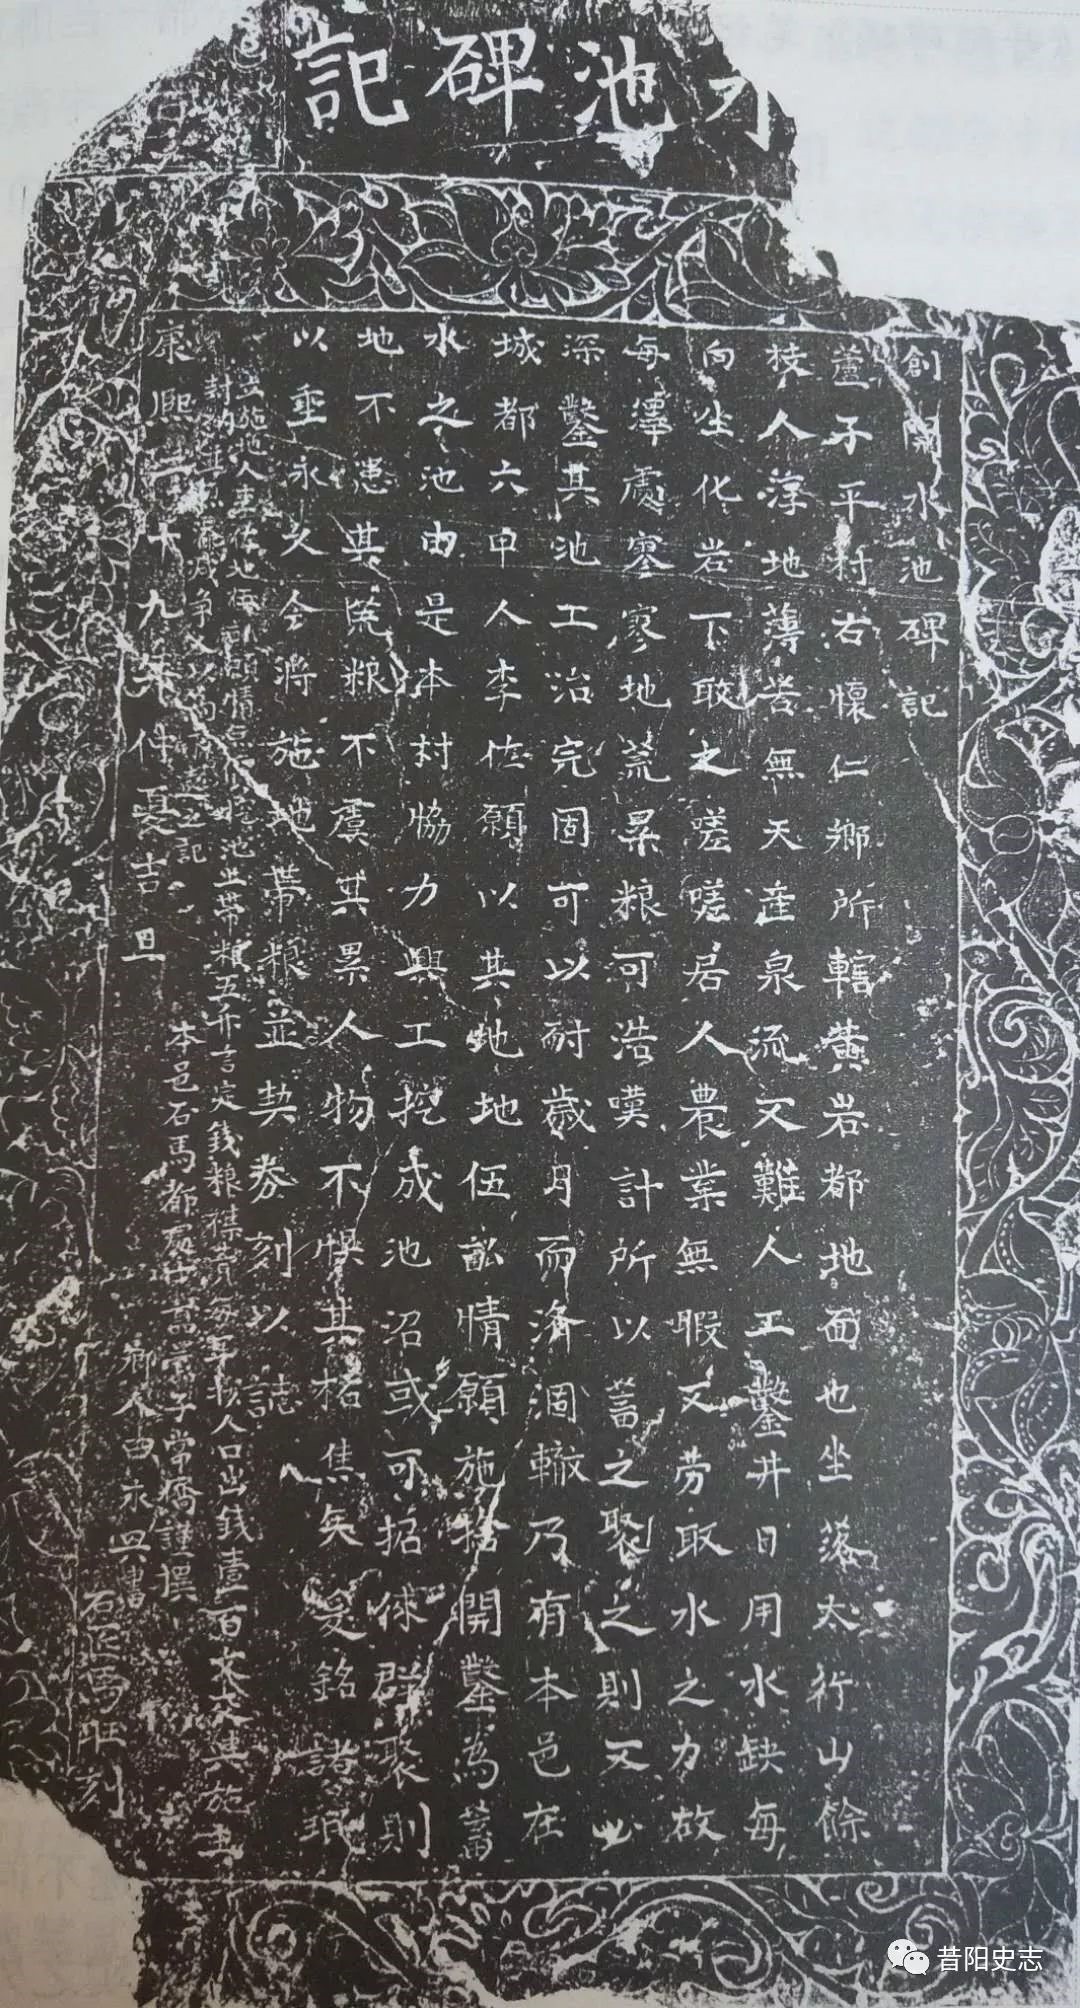 水池碑記
創開水池碑記
蘆子平村右懷仁鄉所轄黃岩都地面也坐落太行山餘
枝人淳地薄苦無天產泉流又難人工鑿井日用水缺每
向坐化岩下取之嗟嗟居人農業無暇又劳取水之力故
每潭處寥寥地荒累粮可浩嘆計所以蓄之聚之則又必
深鑿其池工治完固可以耐歲月而濟涸轍乃有本邑在
城都六甲人李 願以其地地伍畝情願施捨開鑿為蓄
水之池由是本村協力興工挖成池沼或可招徠群聚則
地不患其荒粮不虞其累人物不惧其枯焦矣爰銘諸珉
以垂永久今將施地带粮並契券刻以誌
立施地人 地 情 池 带粮五升言定錢粮 每年 人口出錢壹百文交與施主
封納 争 以 之記
康熙二十九年仲夏吉旦
本邑石馬都 子常 謹撰
鄉人由永興書
石匠馮旺刻
昔阳史志